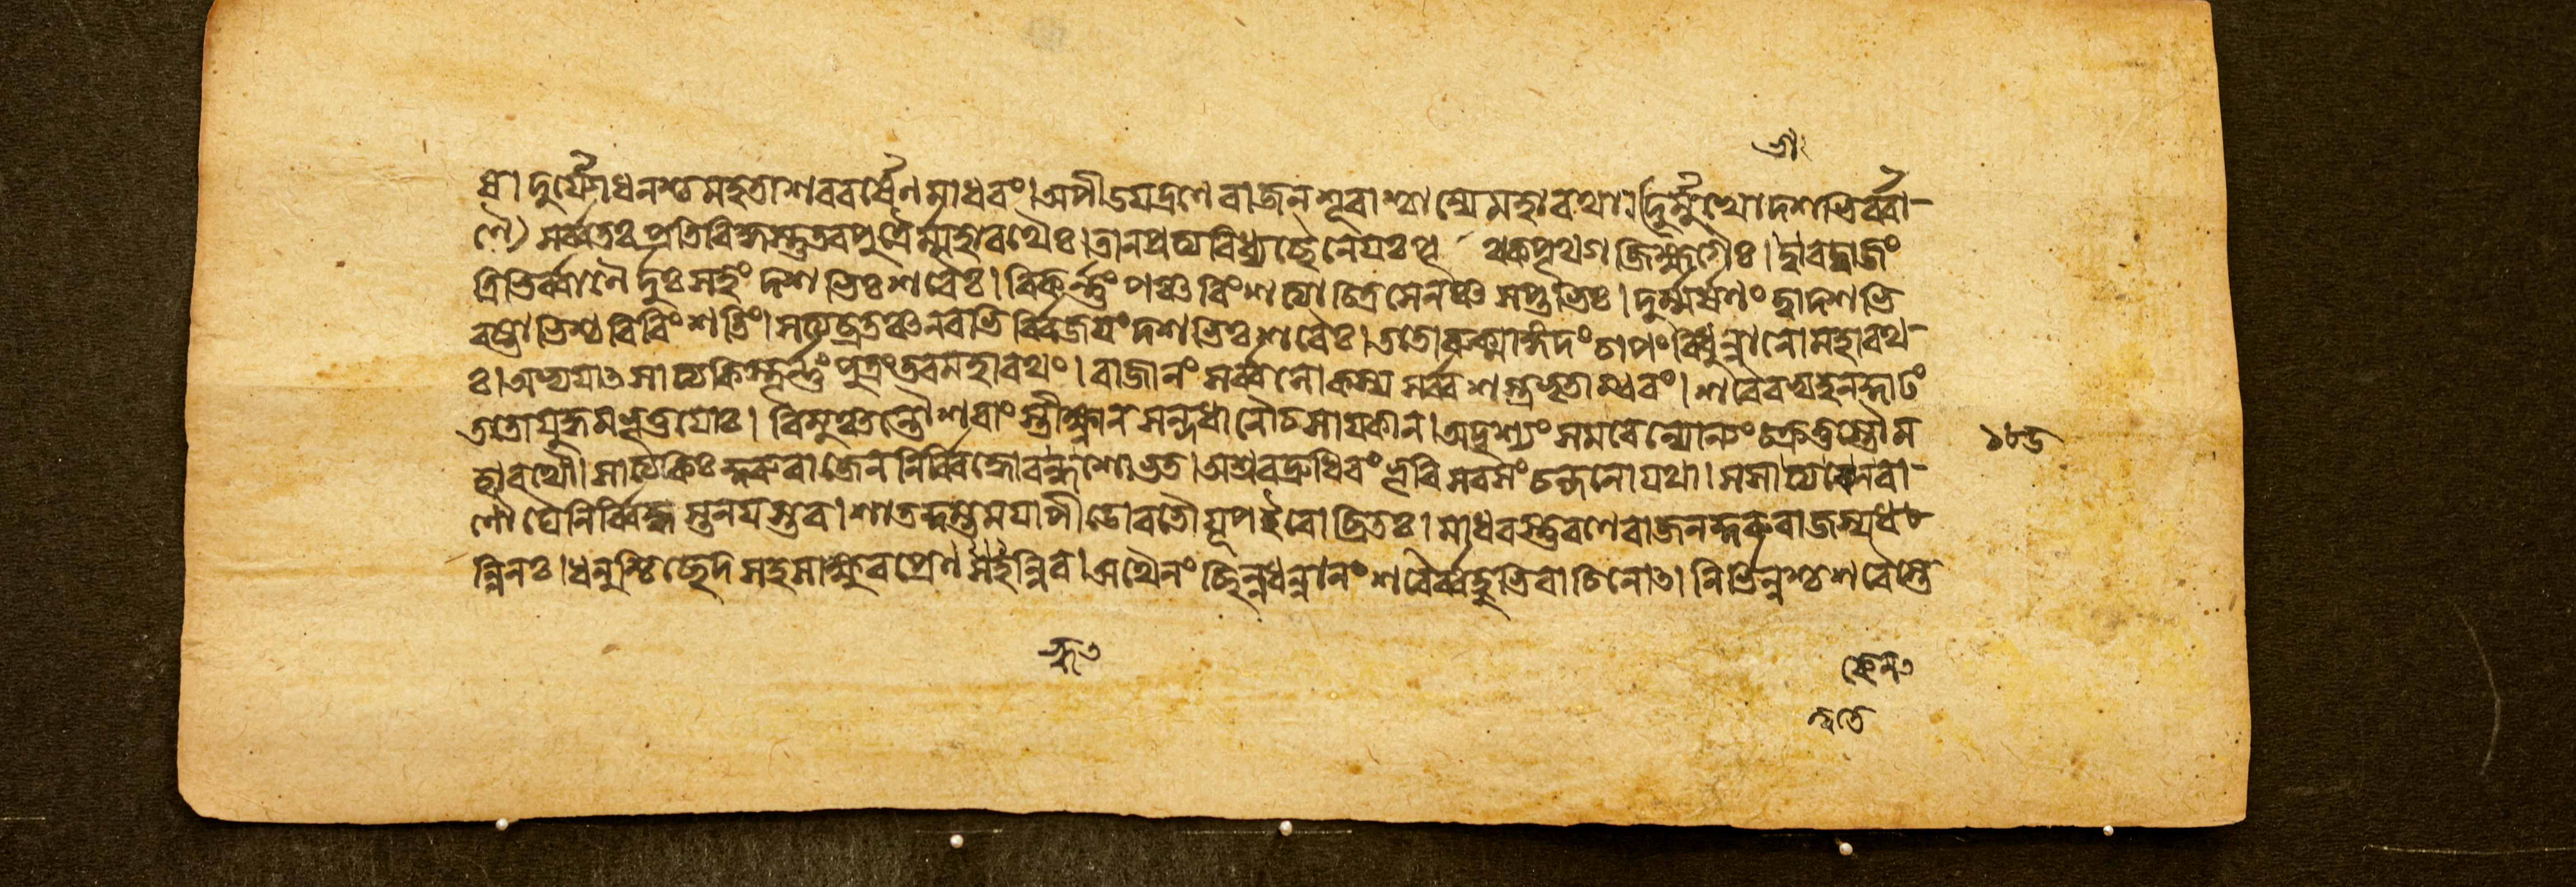 ধা। দুর্যোধনশ্চ মহতা শরবর্ষেণ মাধবং। অপীডযদ্রণে রাজন শূরাশ্চান্যে মহারথাঃ। দুর্ম্মুখো দশভির্ব্বা-
ণৈঃ সর্ব্বতঃ প্রতিবিদ্ধস্তু তব পুত্রৈর্ম্মহারথৈঃ। তান প্রত্যবিধ্যচ্ছৈনেযঃ পৃ থকপৃথগজিহ্মগৈঃ। ভারদ্বাজং
ত্রিভির্ব্বাণৈর্দুঃসহং দশভিঃ শরৈঃ। বিকর্ণ্ণং পঞ্চবিংশত্যা চিত্রসেনঞ্চ সপ্তভিঃ। দুর্ম্মর্ষণং দ্বাদশভি
রষ্টাভিশ্চ বিবিংশতিং। সত্যব্রতঞ্চ নবভির্ব্বিজযং দশভিঃ শরৈঃ। ততো রুক্মাঙ্গদং চাপং বিধুন্বানো মহারথ-
ঃ। অভ্যযাৎ সাত্যকিস্তূর্ণ্ণং পুত্রং তব মহারথং। রাজানং সর্ব্বলোকস্য সর্ব্বশস্ত্রভৃতাম্বরং। শরৈরভ্যহনদ্গাঢং
ততো যুদ্ধমভূত্তযোঃ। বিমুঞ্চতন্তৌ শরাংস্তীক্ষ্ণান সন্দধানৌ চ সাযকান। অদৃশ্যং সমরেন্যোন্যং চক্রতুস্তৌ ম
হারথৌ। সাত্যকিঃ কুরুরাজেন নির্ব্বিদ্ধো বহ্বশোভত। অস্রবদ্রুধিরং ভূরি স্বরসং চন্দনো যথা। সসাত্যকেন বা-
ণৌঘৈর্নির্ব্বিদ্ধস্তনযস্তব। শাতকুম্ভমযাপীডো বভৌ যূপ ইবোচ্ছ্রিতঃ। মাধবস্তু রণে রাজন কুরুরাজস্য ধ
ন্বিনঃ। ধনুশ্চিচ্ছেদ সহসা ক্ষুরপ্রেণ হসন্নিব। অথৈনং ছিন্নধন্বানং শরৈর্ব্বহুভিরাচিনোৎ। নির্ভিন্নশ্চ শরৈস্তে